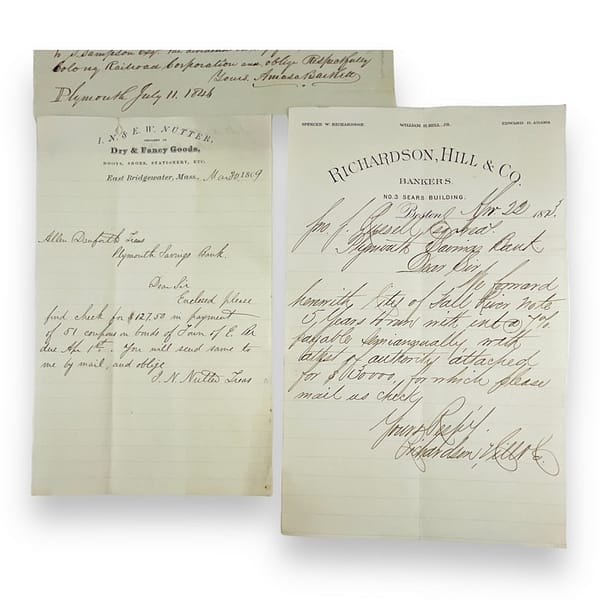 Sampson Esq. The dividend
Colony Railroad Corporation and oblige Respectfully
Yours. Amasa Bartlett
Plymouth July 11. 1846
I. N. & E. W. NUTTER,
Dry & Fancy Goods,
BOOTS, SHOES, STATIONERY, ETC.
East Bridgewater, Mass., Mar 30 1869
Allen Danforth Treas
Plymouth Savings Bank.
Dear Sir
Enclosed please
find check for $127.50 in payment
of 51 coupons on bonds of Town of E. Br
due Apr 1st. You will send same to
me by mail, and oblige
I. N. Nutter Treas
SPENCER W. RICHARDSON. WILLIAM H. HILL, JR. EDWARD D. ADAMS.
RICHARDSON, HILL & CO.
BANKERS.
NO. 3 SEARS BUILDING.
Boston, Apr 22 187
Jno. J. Russell Esq
Plymouth Savings Bank
Dear Sir
We forward
herewith City of Fall River Note
5 years to run with int @ 7%
payable semiannually, with
attest of authority attached
for which please
mail us check
Yours Resp'y.
Richardson, Hill & Co.